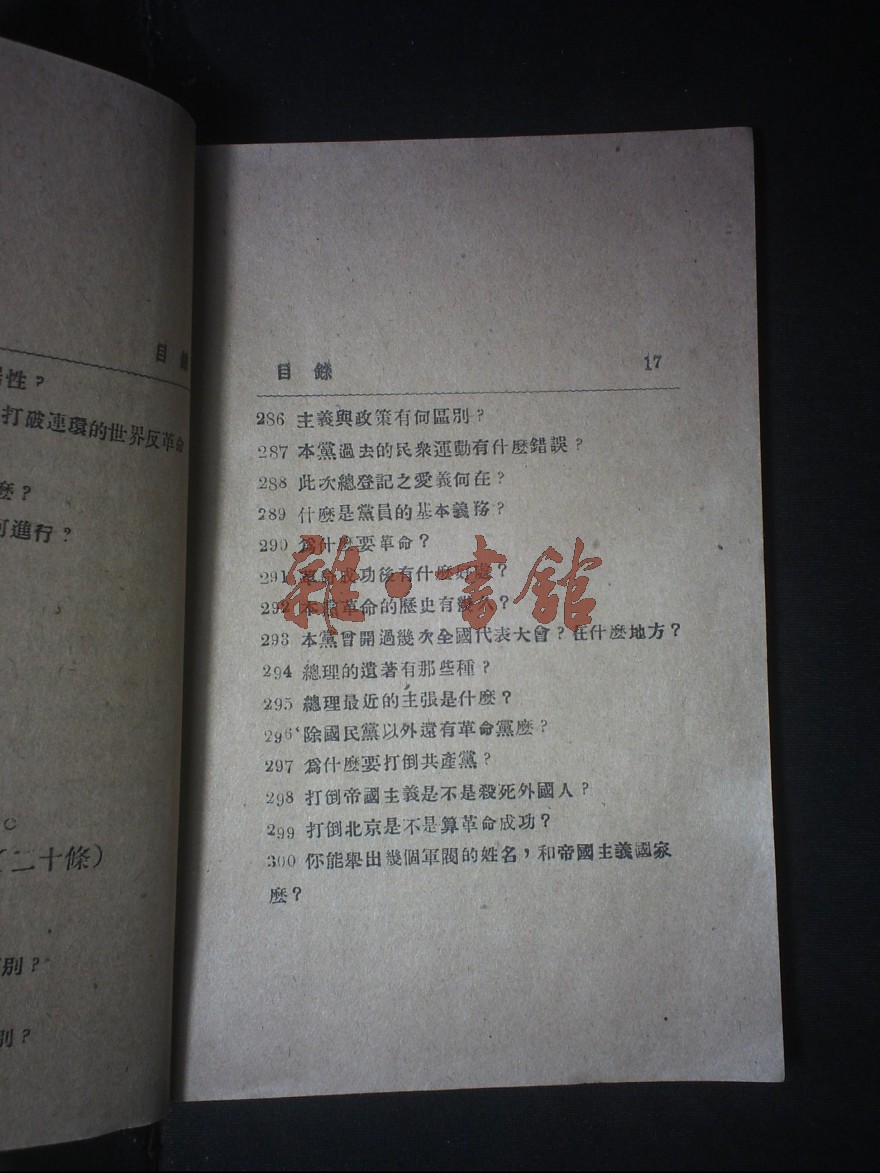 目
性？
打破連環的世界反革命
麼？
可進行？
（二十條）
別？
別？
目錄 17
286 主義與政策有何區別？
287 本黨過去的民衆運動有什麼錯誤？
288 此次總登記之意義何在？
289 什麼是黨員的基本義務？
290 爲什麼要革命？
291 革命成功後有什麼好處？
292 本黨革命的歷史有幾久？
293 本黨曾開過幾次全國代表大會？在什麼地方？
294 總理的遺著有那些種？
295 總理最近的主張是什麼？
296 除國民黨以外還有革命黨麼？
297 爲什麼要打倒共產黨？
298 打倒帝國主義是不是殺死外國人？
299 打倒北京是不是算革命成功？
300 你能舉出幾個軍閥的姓名，和帝國主義國家
麼？
雜·書館